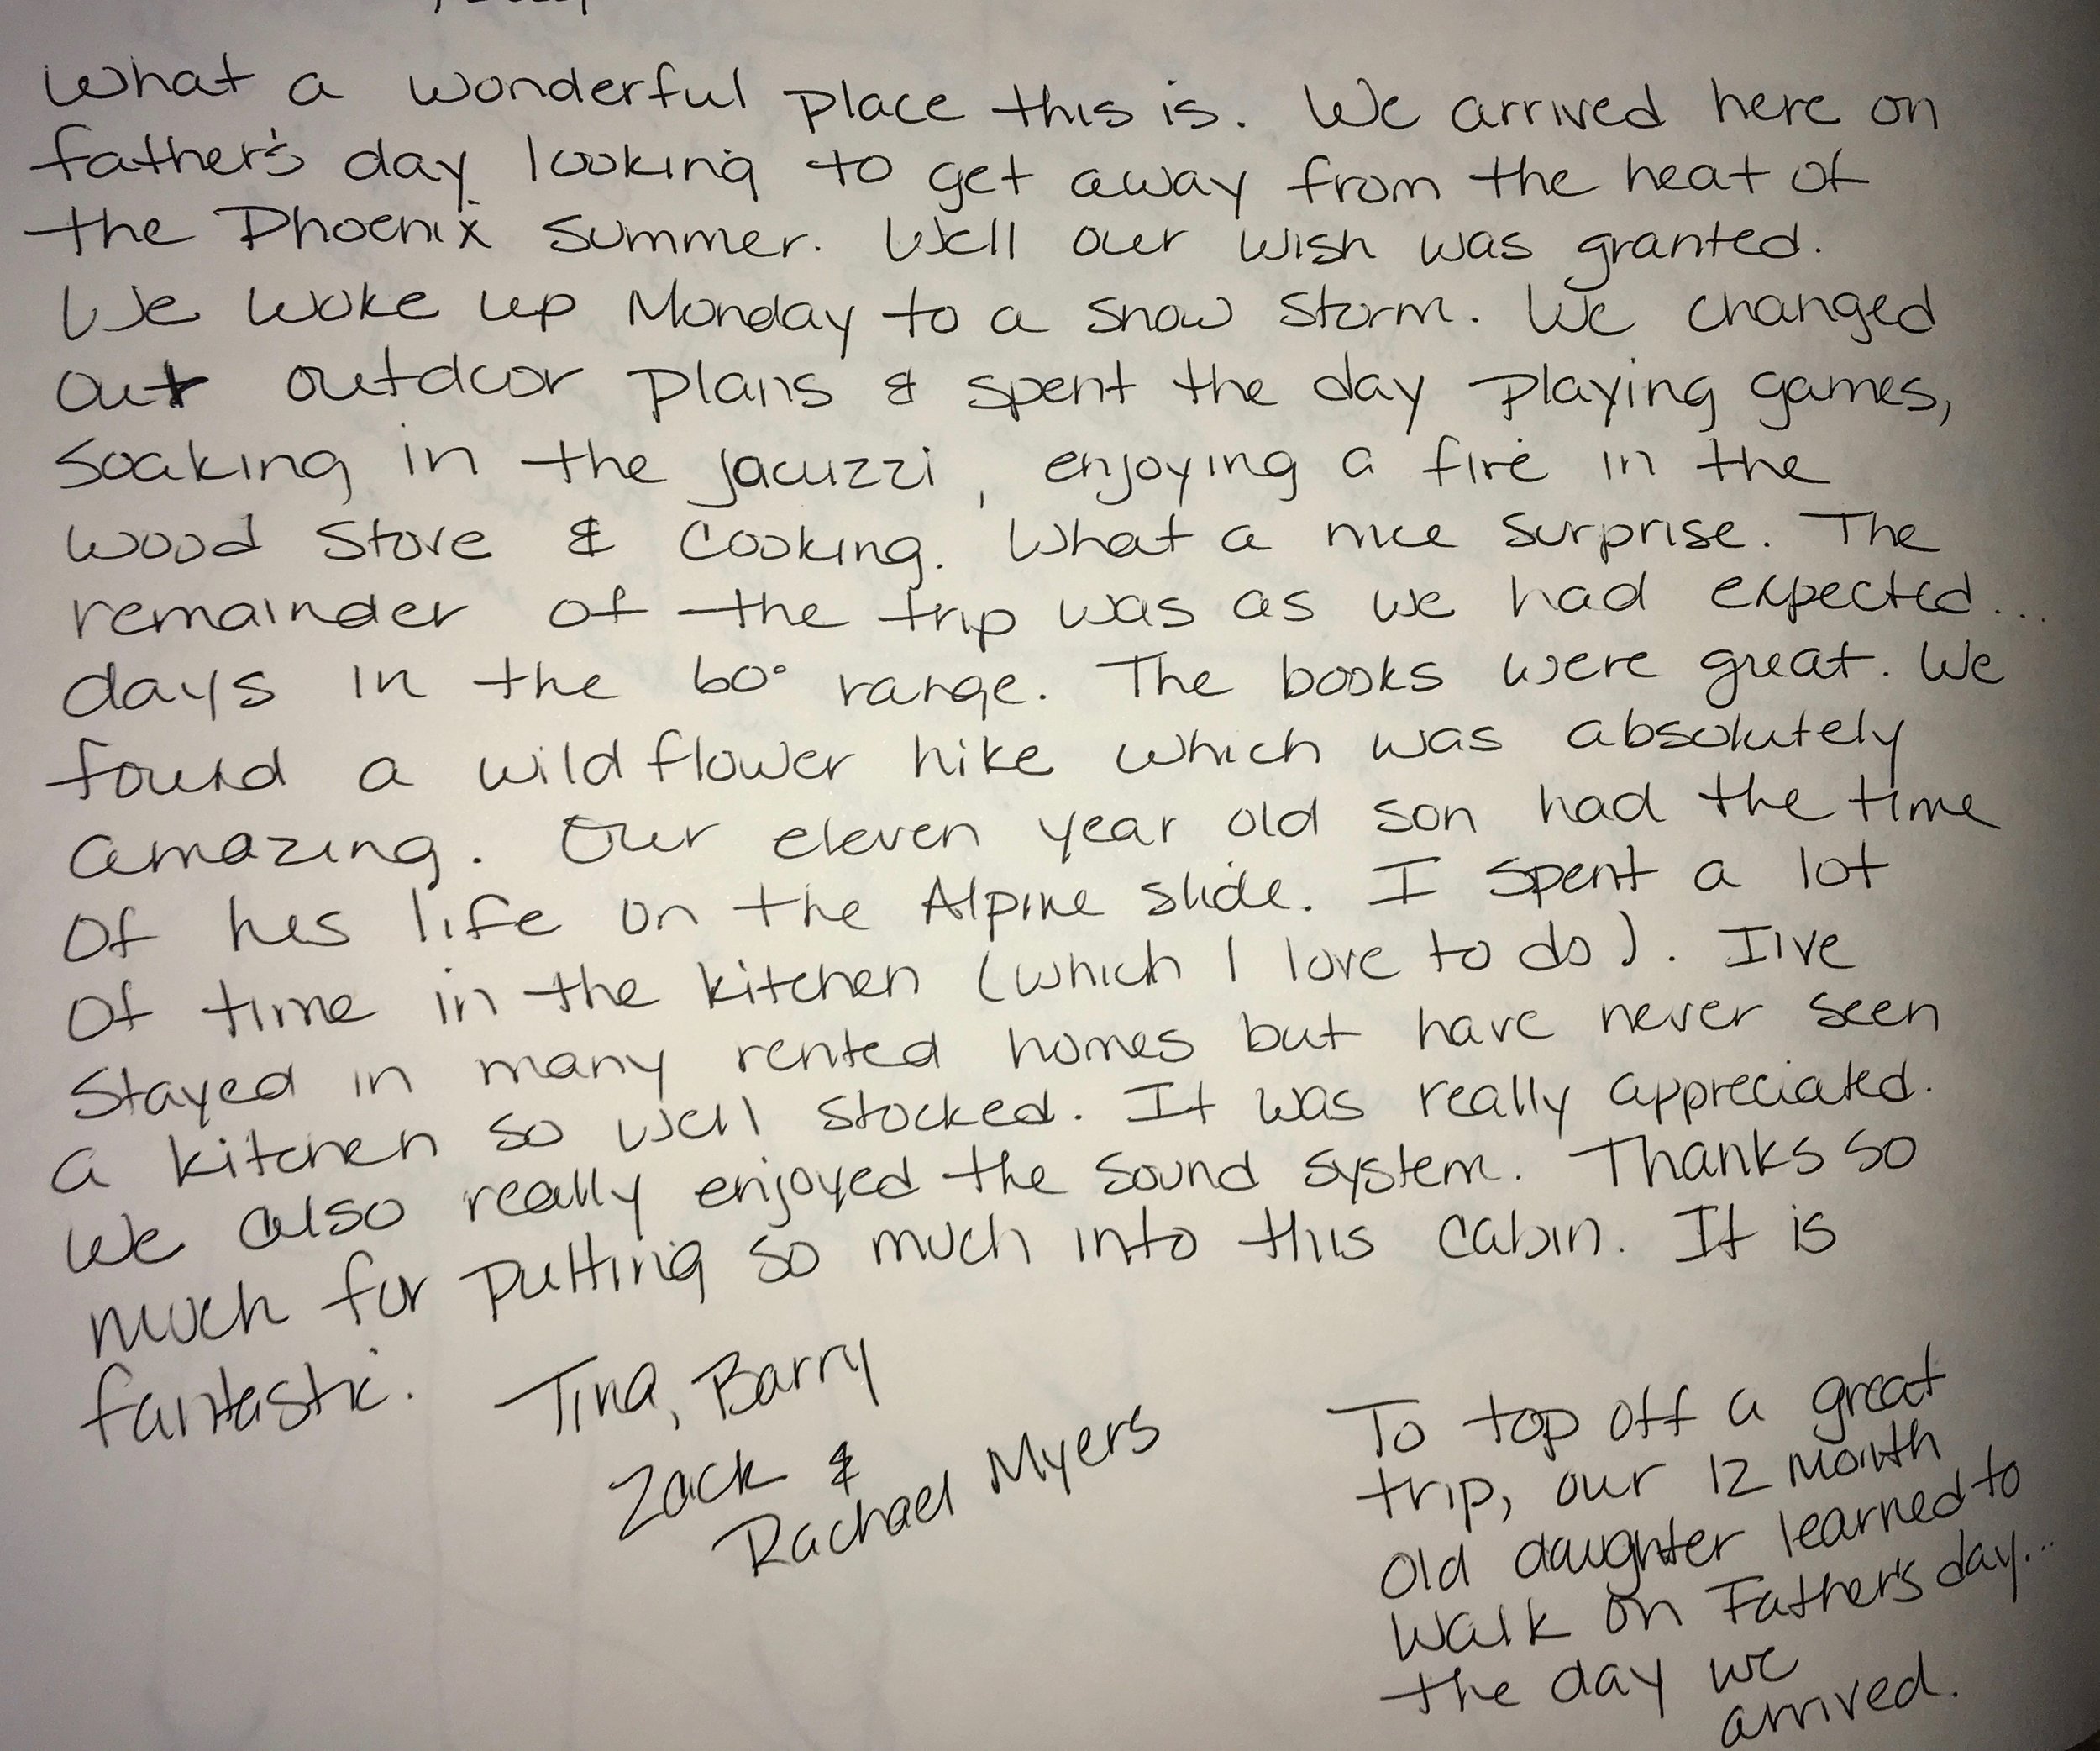 What a wonderful place this is. We arrived here on
father's day looking to get away from the heat of
the Phoenix summer. Well our wish was granted.
We woke up Monday to a snow storm. We changed
our outdoor plans & spent the day playing games,
soaking in the jacuzzi, enjoying a fire in the
wood stove & cooking. What a nice surprise. The
remainder of the trip was as we had expected...
days in the 60° range. The books were great. We
found a wild flower hike which was absolutely
amazing. Our eleven year old son had the time
of his life on the Alpine slide. I spent a lot
of time in the kitchen (which I love to do). I've
stayed in many rented homes but have never seen
a kitchen so well stocked. It was really appreciated.
We also really enjoyed the sound system. Thanks so
much for putting so much into this cabin. It is
fantastic.
Tina, Barry
Zack &
Rachael Myers
To top off a great
trip, our 12 month
old daughter learned to
walk on Father's day...
the day we
arrived.